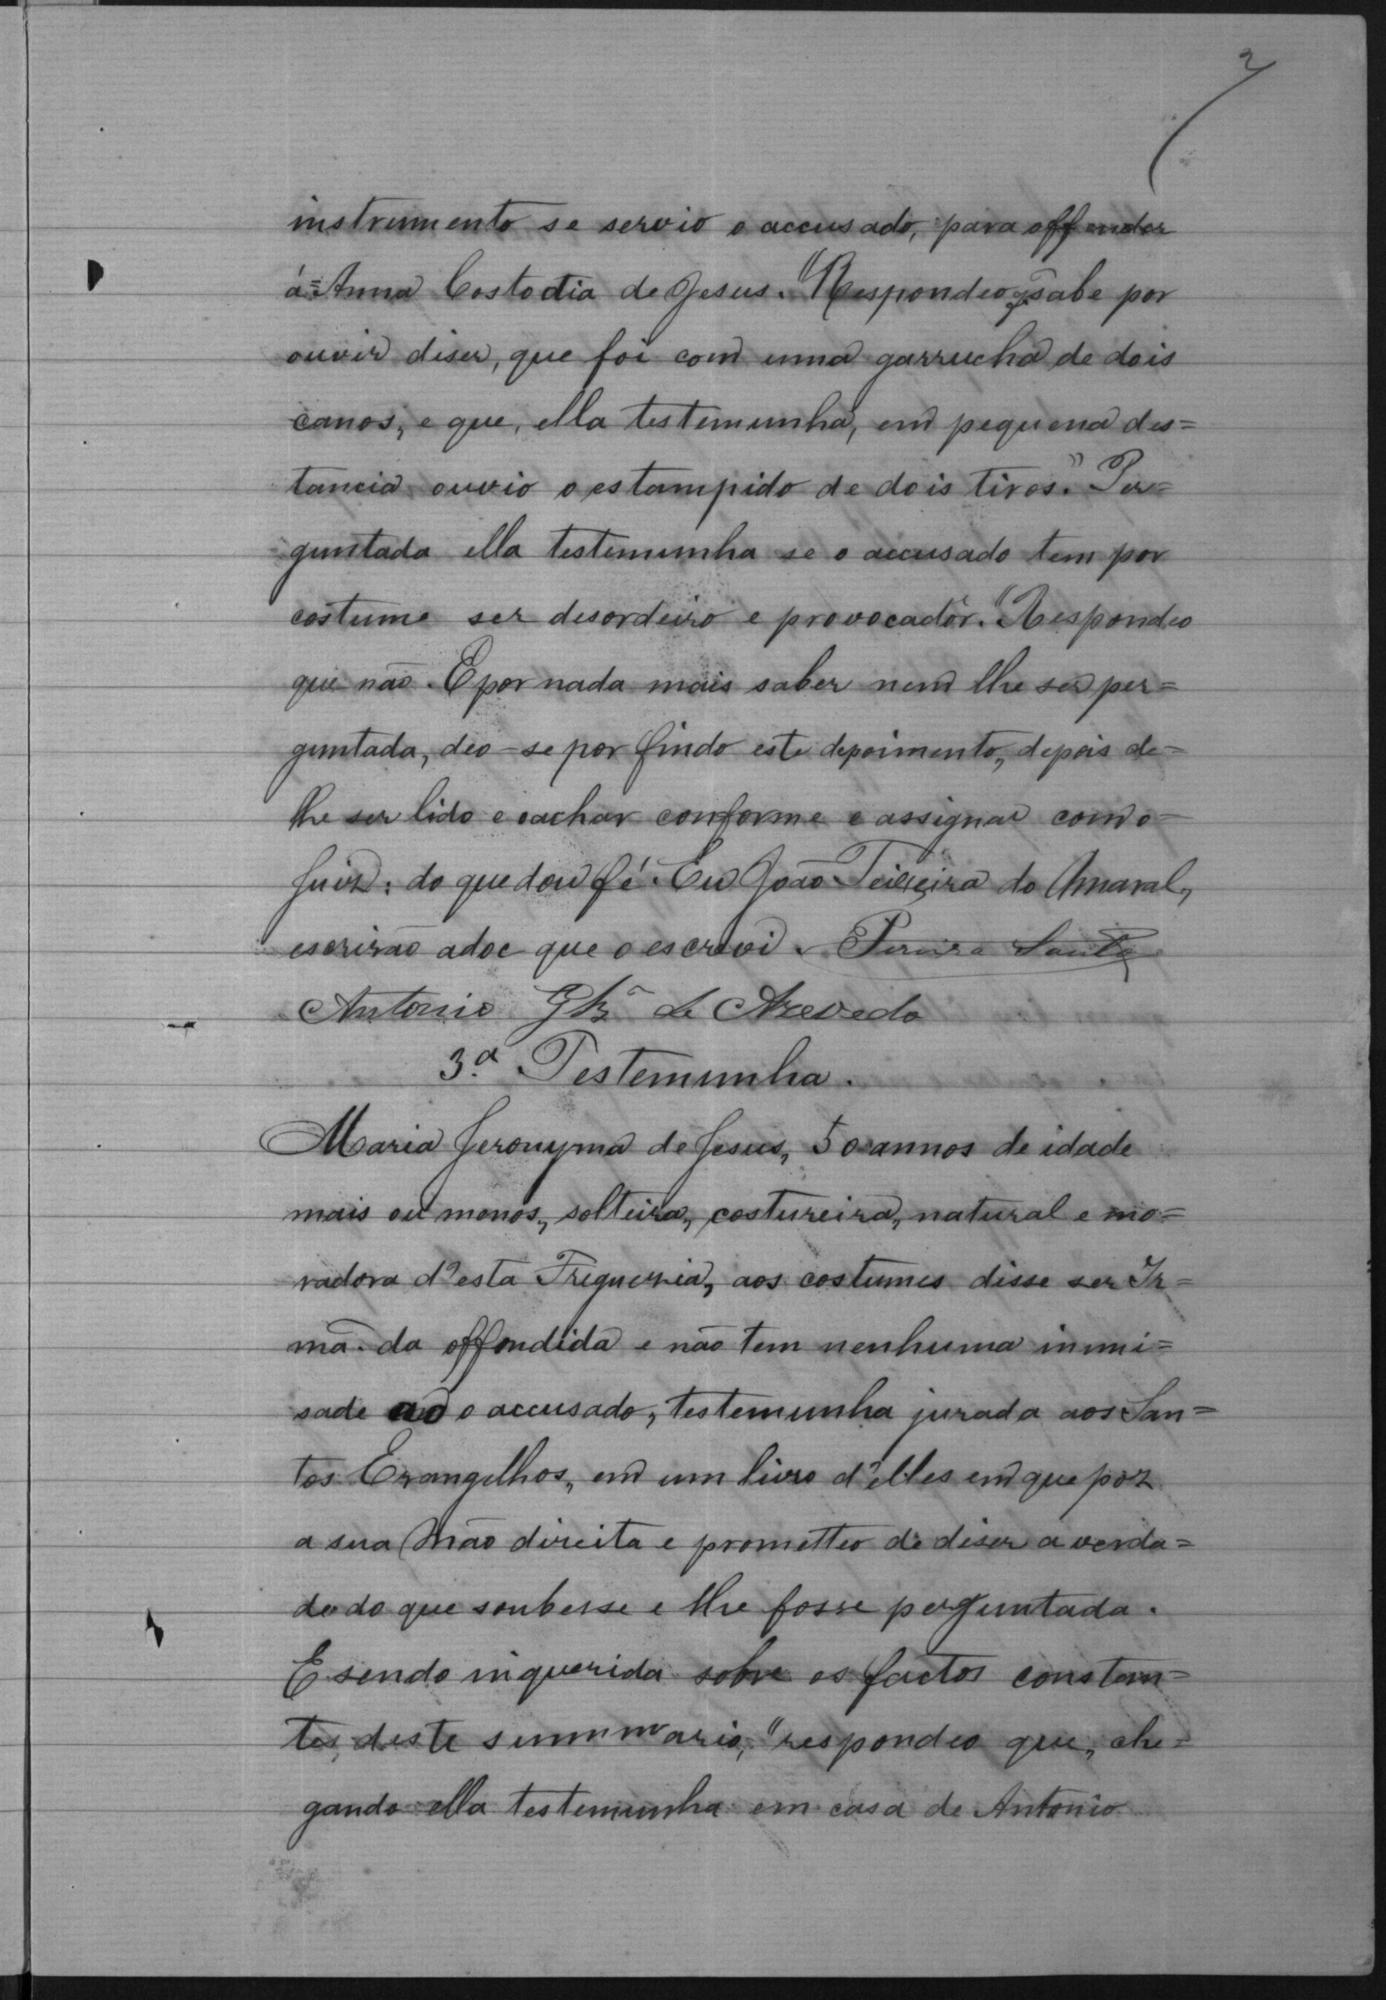 2
instrumento se servio o accusado, para offender
á Anna Costodia de Jesus. "Respondeo q̃ sabe por
ouvir diser, que foi com uma garrucha de dois
canos, e que, ella testemunha, em pequena des=
tancia ouvio o estampido de dois tiros." Per=
guntada ella testemunha se o accusado tem por
costume ser desordeiro e provocadôr. "Respondeo
que não. E por nada mais saber nem lhe ser per=
guntada, deo-se por findo este depoimento, depois de=
lhe ser lido e o achar conforme e assignar com o=
Juiz; do que dou fé. Eu João Teixeira do Amaral,
escrivão adoc que o escrevi. Pereira
Antonio de Azevedo
3.ª Testemunha.
Maria Jeronyma de Jesus, 50 annos de idade
mais ou menos, solteira, costureira, natural e mo=
radora d'esta Freguezia, aos costumes disse ser Ir=
mã da offendida e não tem nenhuma inimi=
sade ao o accusado, testemunha jurada aos San=
tos Evangelhos, em um livro d'elles em que poz
a sua mão direita e prometteo de diser a verda=
de do que soubesse e lhe fosse perguntada.
E sendo inquerida sobre os factos constan=
tes deste summario, "respondeo que, che=
gando ella testemunha em casa de Antonio